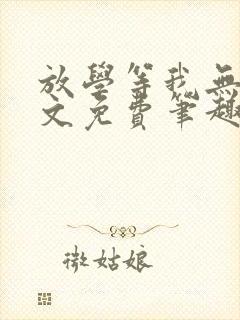 放學等我無
文免費筆趣
微姑娘